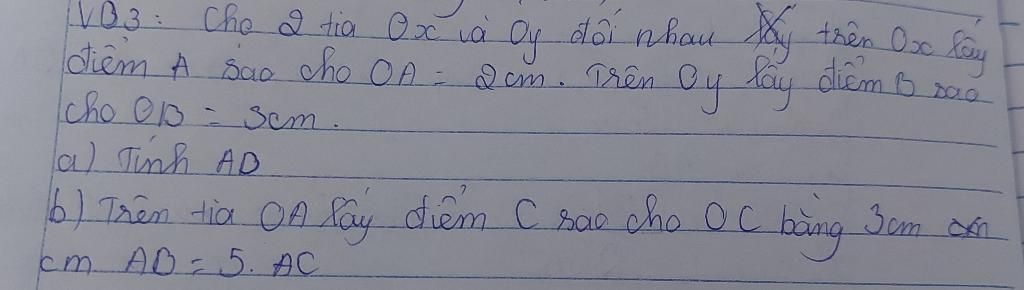 VD3: Cho 2 tia Ox và Oy đối nhau lấy trên Ox lấy
điểm A sao cho OA = 2cm. Trên Oy lấy điểm B sao
cho OB = 3cm.
a) Tính AB
b) Trên tia OA lấy điểm C sao cho OC bằng 3cm cm
cm AB = 5. AC